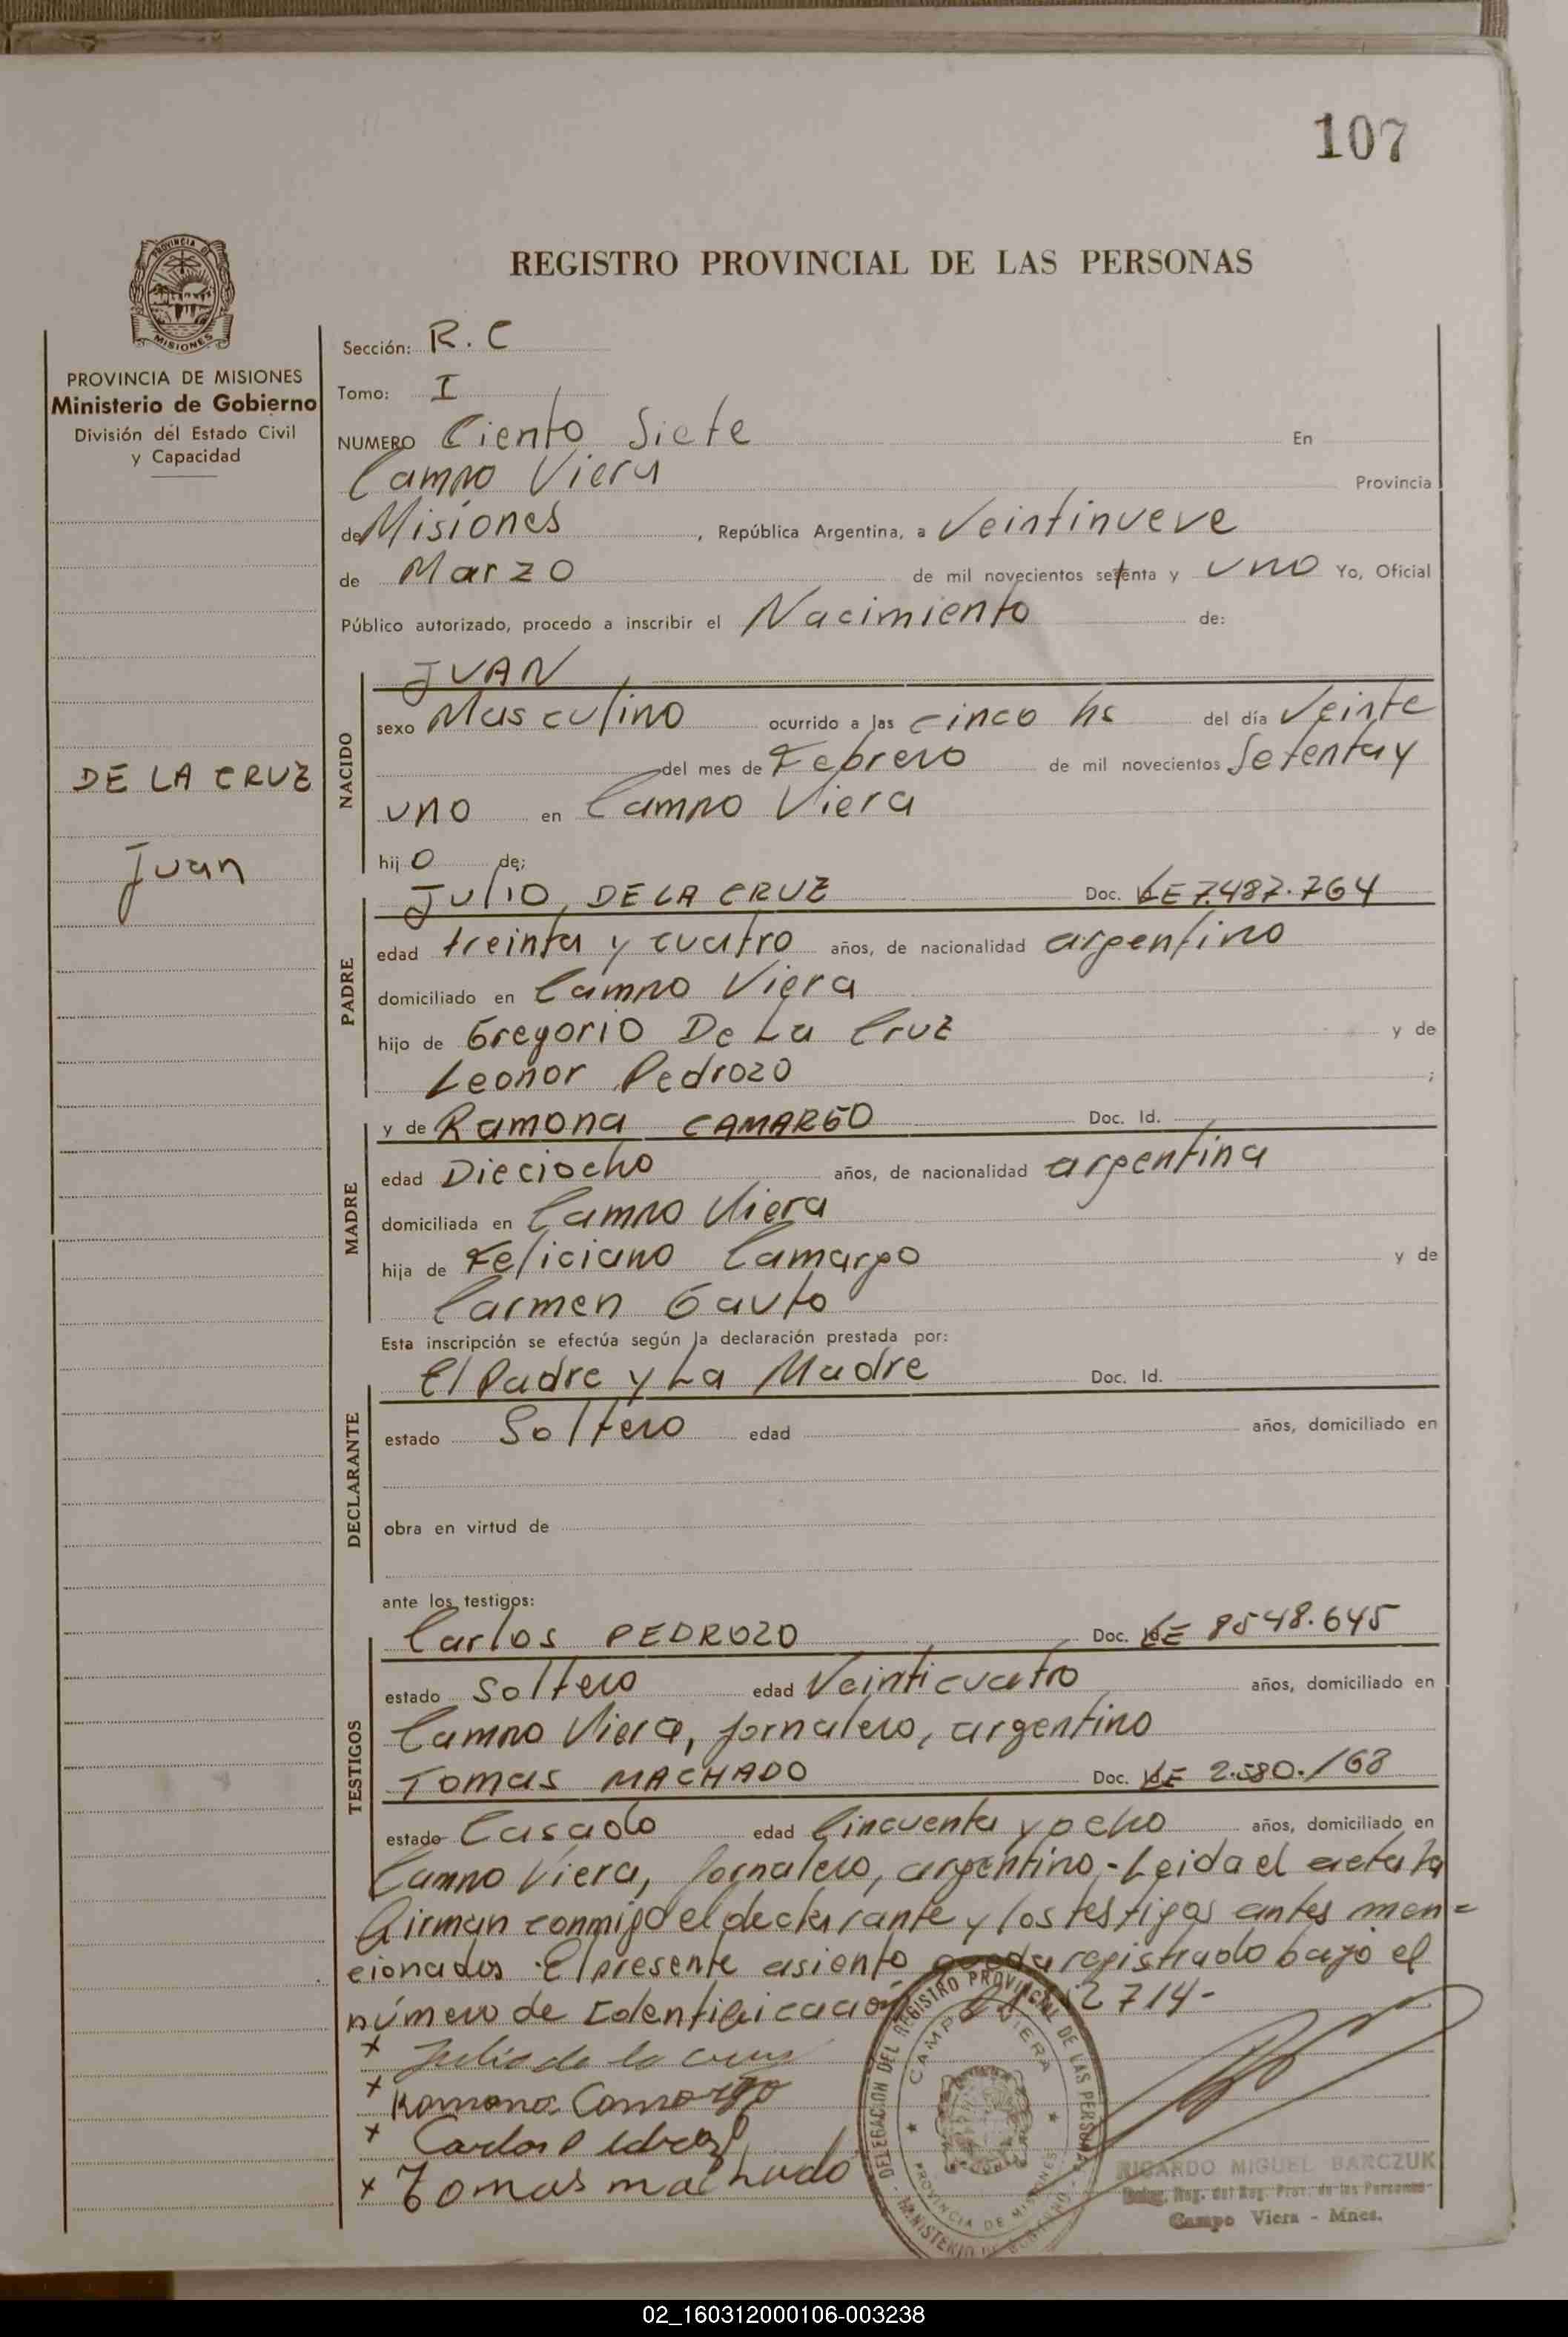 107
REGISTRO PROVINCIAL DE LAS PERSONAS
PROVINCIA DE MISIONES
Ministerio de Gobierno
División del Estado Civil
y Capacidad
DE LA CRUZ
Juan
Sección: R. C
Tomo: I
NUMERO Ciento Siete En
Campo Viera Provincia
de Misiones, República Argentina, a Veintinueve
de Marzo de mil novecientos setenta y uno Yo, Oficial
Público autorizado, procedo a inscribir el Nacimiento de:
NACIDO
JUAN
sexo Masculino ocurrido a las cinco hs del día Veinte
del mes de Febrero de mil novecientos Setenta y
uno en Campo Viera
hijo de;
PADRE
Julio, DE LA CRUZ Doc. LE 7.487.764
edad treinta y cuatro años, de nacionalidad argentino
domiciliado en Campo Viera
hijo de Gregorio De La Cruz y de
Leonor Pedrozo ;
MADRE
y de Ramona CAMARGO Doc. Id.
edad Dieciocho años, de nacionalidad argentina
domiciliada en Campo Viera
hija de Feliciano Camargo y de
Carmen Gauto
Esta inscripción se efectúa según la declaración prestada por:
DECLARANTE
El Padre y La Madre Doc. Id.
estado Soltero edad años, domiciliado en
obra en virtud de
ante los testigos:
TESTIGOS
Carlos PEDROZO Doc. LE 8548.645
estado Soltero edad Veinticuatro años, domiciliado en
Campo Viera, jornalero, argentino
Tomas MACHADO Doc. LE 2.580.168
estado Casado edad Cincuenta y ocho años, domiciliado en
Campo Viera, jornalero, argentino,- Leida el acta la
firman conmigo el declarante y los testigos antes men=
cionados. El presente asiento queda registrado bajo el
número de Identificación 2714-
x Julio de la cruz
x Ramona Camargo
x Carlos Pedrozo
x Tomas machado
DELEGACION DEL REGISTRO PROVINCIAL DE LAS PERSONAS
CAMPO VIERA
PROVINCIA DE MISIONES
MINISTERIO DE GOBIERNO
RICARDO MIGUEL BARCZUK
Deleg. Reg. del Reg. Prov. de las Personas
Campo Viera - Mnes.
02_160312000106-003238